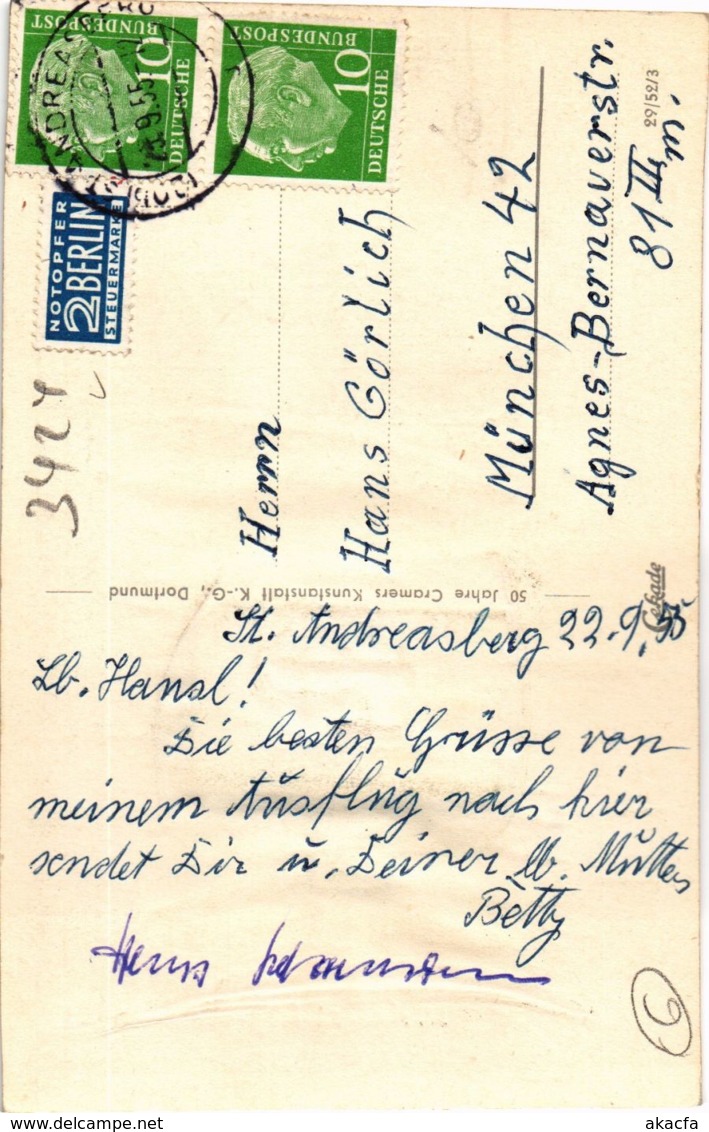 DEUTSCHE
BUNDESPOST
10
DEUTSCHE
BUNDESPOST
10
ANDREASBERG
9.55
NOTOPFER
2 BERLIN
STEUERMARKE
3424
Herrn
Hans Görlich
München 42
Agnes-Bernauerstr.
81 III m.
29/52/3
50 Jahre Cramers Kunstanstalt K.-G., Dortmund
Cekade
St. Andreasberg 22.9.55
Lb. Hansl!
Die besten Grüsse von
meinem Ausflug nach hier
sendet Dir u. Deiner lb. Mutter
Betty
6
delcampe.net
akacfa